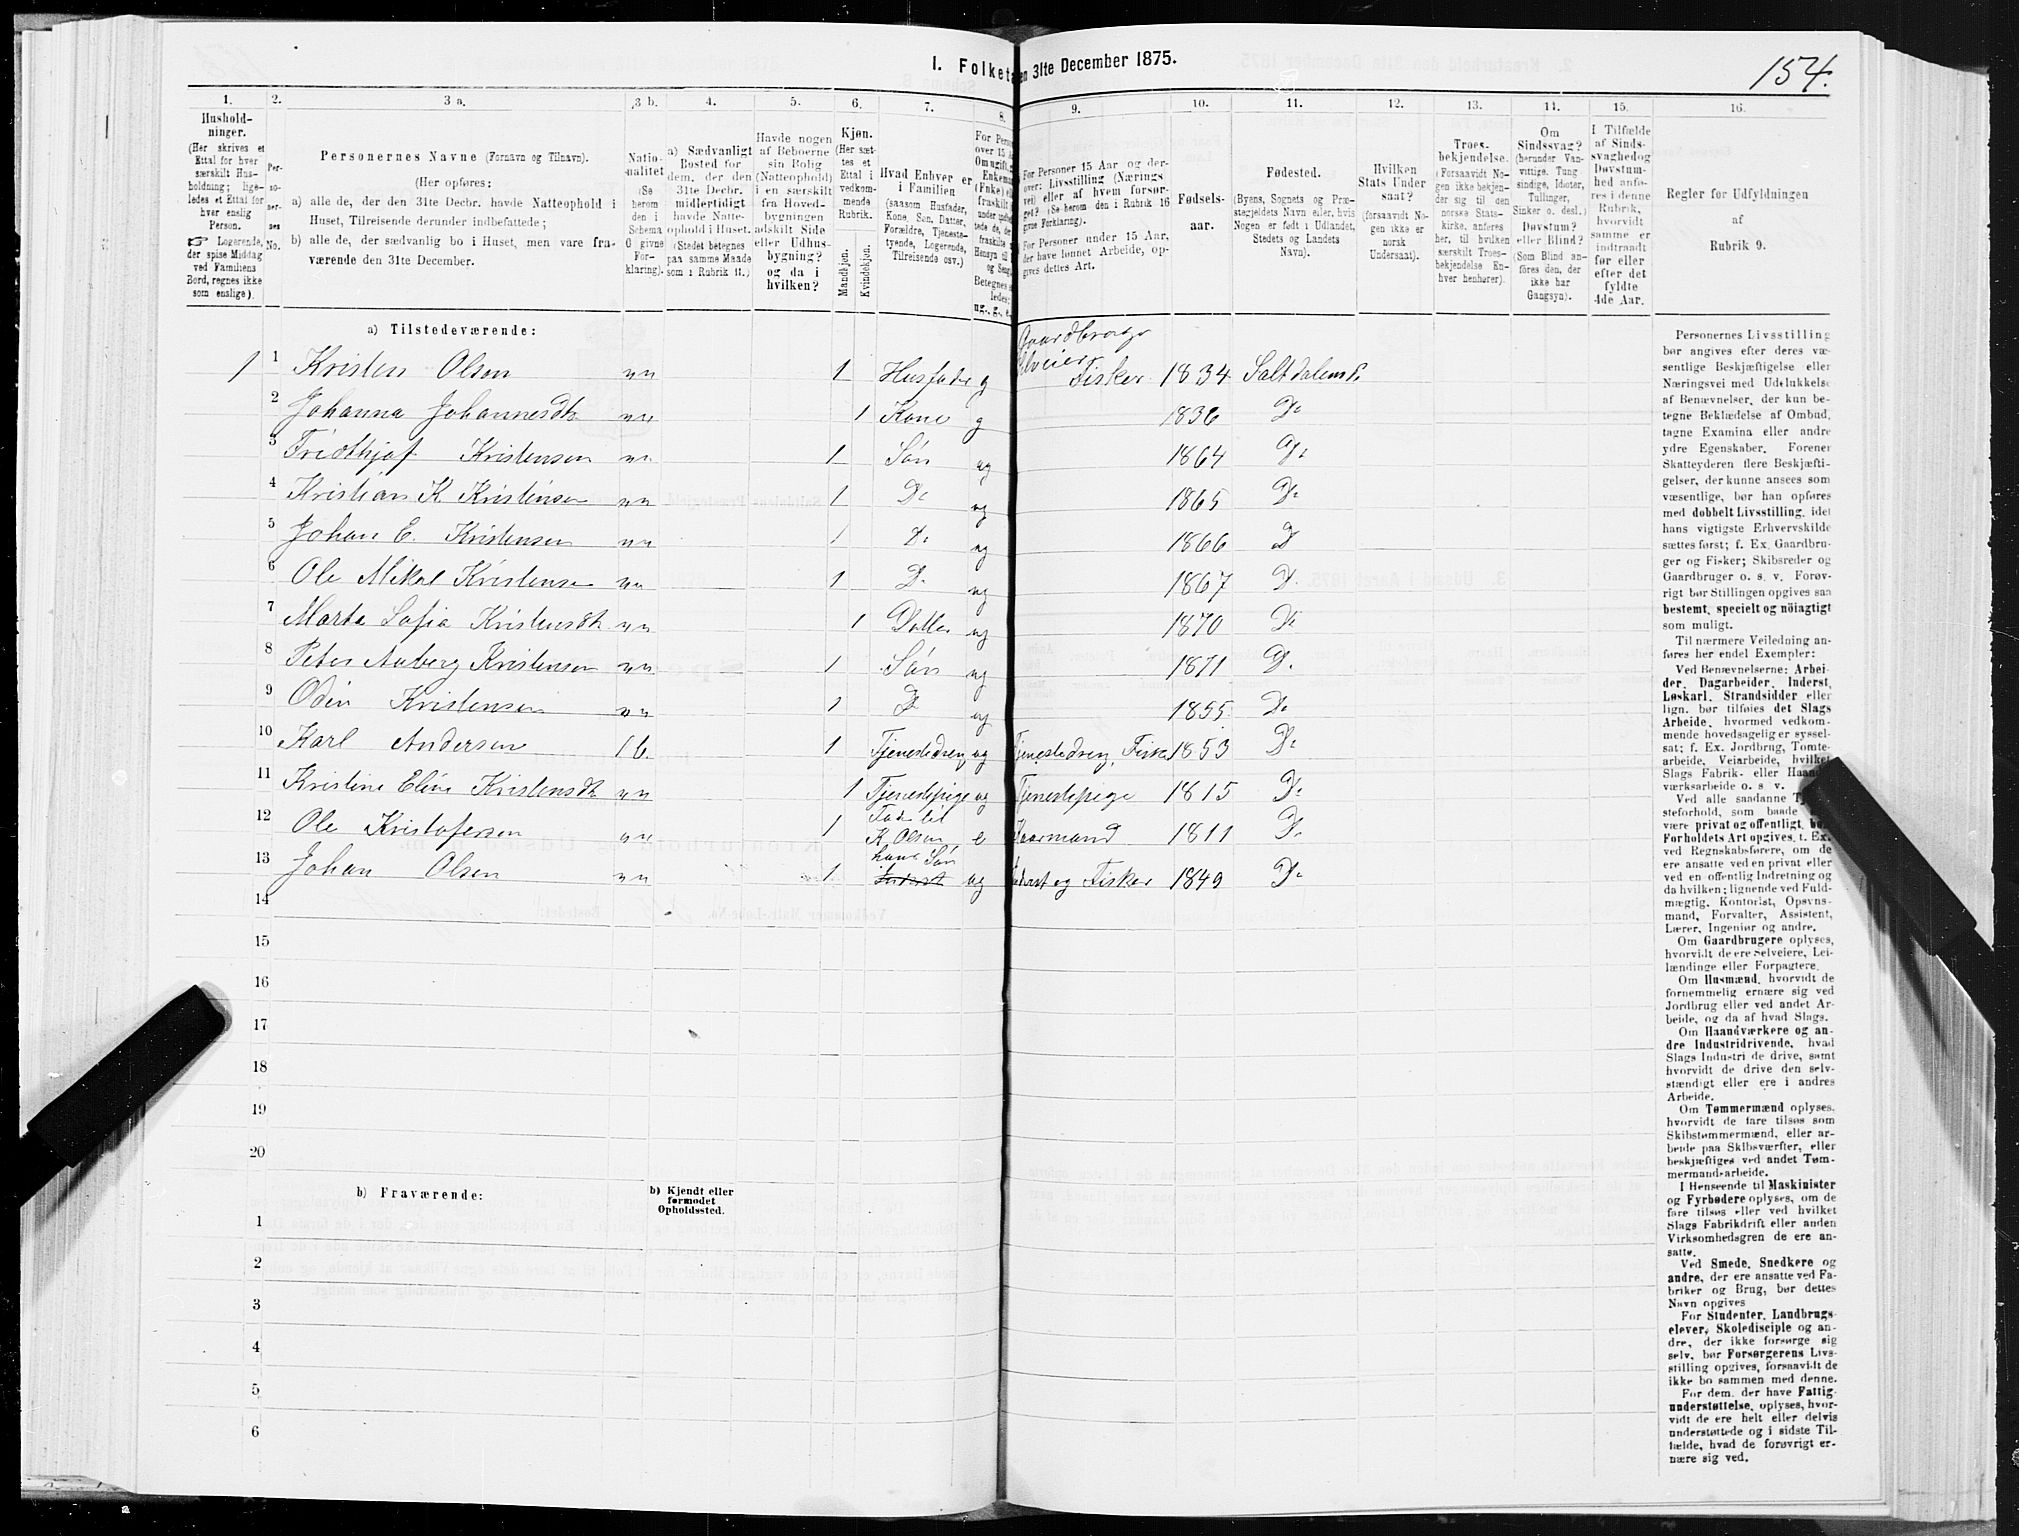 154.
I. Folketa en 31te December 1875.
1. 2. 3 a. 3 b. 4. 5. 6. 7. 8. 9. 10. 11. 12. 13. 14. 15. 16.
Husholdninger. (Her skrives et Ettal for hver særskilt Husholdning; ligeledes et Ettal for hver enslig Person. ☞ Logerende, der spise Middag ved Familiens Bord, regnes ikke som enslige).
Personernes No.
Personernes Navne (Fornavn og Tilnavn).
(Her opføres:
a) alle de, der den 31te Decbr. havde Natteophold i Huset, Tilreisende derunder indbefattede;
b) alle de, der sædvanlig bo i Huset, men vare fraværende den 31te December.
Nationalitet (Se herom den i Schema O givne Forklaring).
a) Sædvanligt Bosted for dem, der den 31te Decbr. midlertidigt havde Natteophold i Huset. (Stedet betegnes paa samme Maade som i Rubrik 11.)
Havde nogen af Beboerne sin Bolig (Natteophold) i en særskilt fra Hovedbygningen adskilt Side eller Udhusbygning? og da i hvilken?
Kjøn. (Her sættes et Ettal i vedkommende Rubrik.
Mandkjøn. Kvindekjøn.
Hvad Enhver er i Familien (saasom Husfader, Kone, Søn, Datter, Forældre, Tjenestetyende, Logerende, Tilreisende osv.)
For Personer 15 Aar og derover: Livsstilling (Næringsvei) eller af hvem forsørget? (Se herom den i Rubrik 16 givne Forklaring).
For Personer under 15 Aar, der have lønnet Arbeide, opgives dettes Art.
Fødselsaar.
Fødested. (Byens, Sognets og Præstegjeldets Navn eller, hvis Nogen er født i Udlandet, Stedets og Landets Navn).
Hvilken Stats Undersaat? (forsaavidt Nogen ikke er norsk Undersaat).
Troesbekjendelse. (Forsaavidt Nogen ikke bekjender sig til den norske Statskirke, anføres her, til hvilken særskilt Troesbekjendelse Enhver henhører).
Om Sindssvag? (herunder Vanvittige, Tungsindige, Idioter, Tullinger, Sinker o. desl.) Døvstum? eller Blind? (Som Blind anføres den, der ikke har Gangsyn).
I Tilfælde af Sindssvaghed og Døvstumhed anføres i denne Rubrik, hvorvidt samme er indtraadt før eller efter det fyldte 4de Aar.
Regler for Udfyldningen
af
Rubrik 9.
a) Tilstedeværende:
Gaardbruger
Selveier
1 1 Kristen Olsen nn 1 Husfader g Fisker 1834 Saltdalens P.
2 Johanna Johannesdtr nn 1 Kone g 1836 Do
3 Fridthjof Kristensen nn 1 Søn ug 1864 Do
4 Kristian K Kristensen nn 1 Do ug 1865 Do
5 Johan E. Kristensen nn 1 Do ug 1866 D
6 Ole Mikal Kristensen nn 1 D. ug 1867 D.
7 Marta Sofia Kristensdtr nn 1 Datter ug 1870 Do
8 Peter Auberg Kristensen nn 1 Søn ug 1871 D.
9 Odin Kristensen nn 1 D ug 1855 Do
10 Karl Andersen 1 b. 1 Tjenestedreng ug Tjenestedreng, Fisker 1853 Do
11 Kristine Eline Kristensdtr nn 1 Tjenestepige ug Tjenestepige 1815 Do
12 Ole Kristofersen nn 1 Fader til K Olsen e Kaarmand 1811 Do
13 Johan Olsen nn 1 hans Søn Inderst ug Inderst og Fisker 1849 Do
14
15
16
17
18
19
20
b) Fraværende: b) Kjendt eller formodet Opholdssted.
1
2
3
4
5
6
Personernes Livsstilling
bør angives efter deres væ-
sentlige Beskjæftigelse eller
Næringsvei med Udelukkelse
af Benævnelser, der kun be-
tegne Beklædelse af Ombud,
tagne Examina eller andre
ydre Egenskaber. Forener
Skatteyderen flere Beskjæfti-
gelser, der kunne ansees som
væsentlige, bør han opføres
med dobbelt Livsstilling, idet
hans vigtigste Erhvervskilde
sættes først; f. Ex. Gaardbru-
ger og Fisker; Skibsreder og
Gaardbruger o. s. v. Forøv-
rigt bør Stillingen opgives saa
bestemt, specielt og nøiagtigt
som muligt.
Til nærmere Veiledning an-
føres her endel Exempler:
Ved Benævnelserne: Arbei-
der, Dagarbeider, Inderst,
Løskarl, Strandsidder eller
lign. bør tilføies det Slags
Arbeide, hvormed vedkom-
mende hovedsagelig er syssel-
sat; f. Ex. Jordbrug, Tomte-
arbeide, Veiarbeide, hvilket
Slags Fabrik- eller Haand-
værksarbeide o. s. v.
Ved alle saadanne Tje-
nesteforhold, som baade
være privat og offentligt, bør
Forholdets Art opgives, t. Ex.
ved Regnskabsførere, om de
ere ansatte ved en privat eller
ved en offentlig Indretning og
da hvilken; lignende ved Fuld-
mægtig, Kontorist, Opsyns-
mand, Forvalter, Assistent,
Lærer, Ingeniør og andre.
Om Gaardbrugere oplyses,
hvorvidt de ere Selveiere, Lei-
lændinge eller Forpagtere.
Om Husmænd, hvorvidt de
fornemmelig ernære sig ved
Jordbrug eller ved andet Ar-
beide, og da af hvad Slags.
Om Haandværkere og an-
dre Industridrivende, hvad
Slags Industri de drive, samt
hvorvidt de drive den selv-
stændigt eller ere i andres
Arbeide.
Om Tømmermænd oplyses,
hvorvidt de fare tilsøs som
Skibstømmermænd, eller ar-
beide paa Skibsværfter, eller
beskjæftiges ved andet Tøm-
mermand-arbeide.
I Henseende til Maskinister
og Fyrbødere oplyses, om de
fare tilsøs eller ved hvilket
Slags Fabrikdrift eller anden
Virksomhedsgren de ere an-
satte.
Ved Smede, Snedkere og
andre, der ere ansatte ved Fa-
briker og Brug, bør dettes
Navn opgives
For Studenter, Landbrugs-
elever, Skoledisciple og an-
dre, der ikke forsørge sig
selv, bør Forsørgerens Livs-
stilling opgives, forsaavidt de
ikke bo sammen med denne.
For dem, der have Fattig-
understøttelse, oplyses, hvor-
vidt de ere helt eller delvis
understøttede og i sidste Til-
fælde, hvad de forøvrigt er-
nære sig ved.